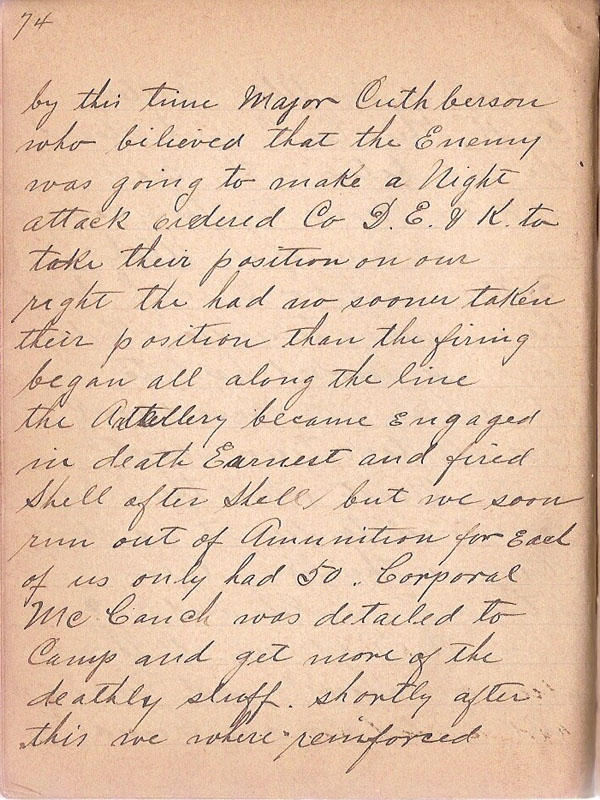 74
by this time Major Cuthberson
who bilieved that the Enemy
was going to make a Night
attack ordered Co D. E. & K. to
take their position on our
right the had no sooner taken
their position than the firing
began all along the line
the Artellery became Engaged
in death Earnest and fired
Shell after Shell but we soon
run out of Amunition for Each
of us only had 50. Corporal
Mc Canch was detailed to
Camp and get more of the
deathly stuff. shortly after
this we where reinforced